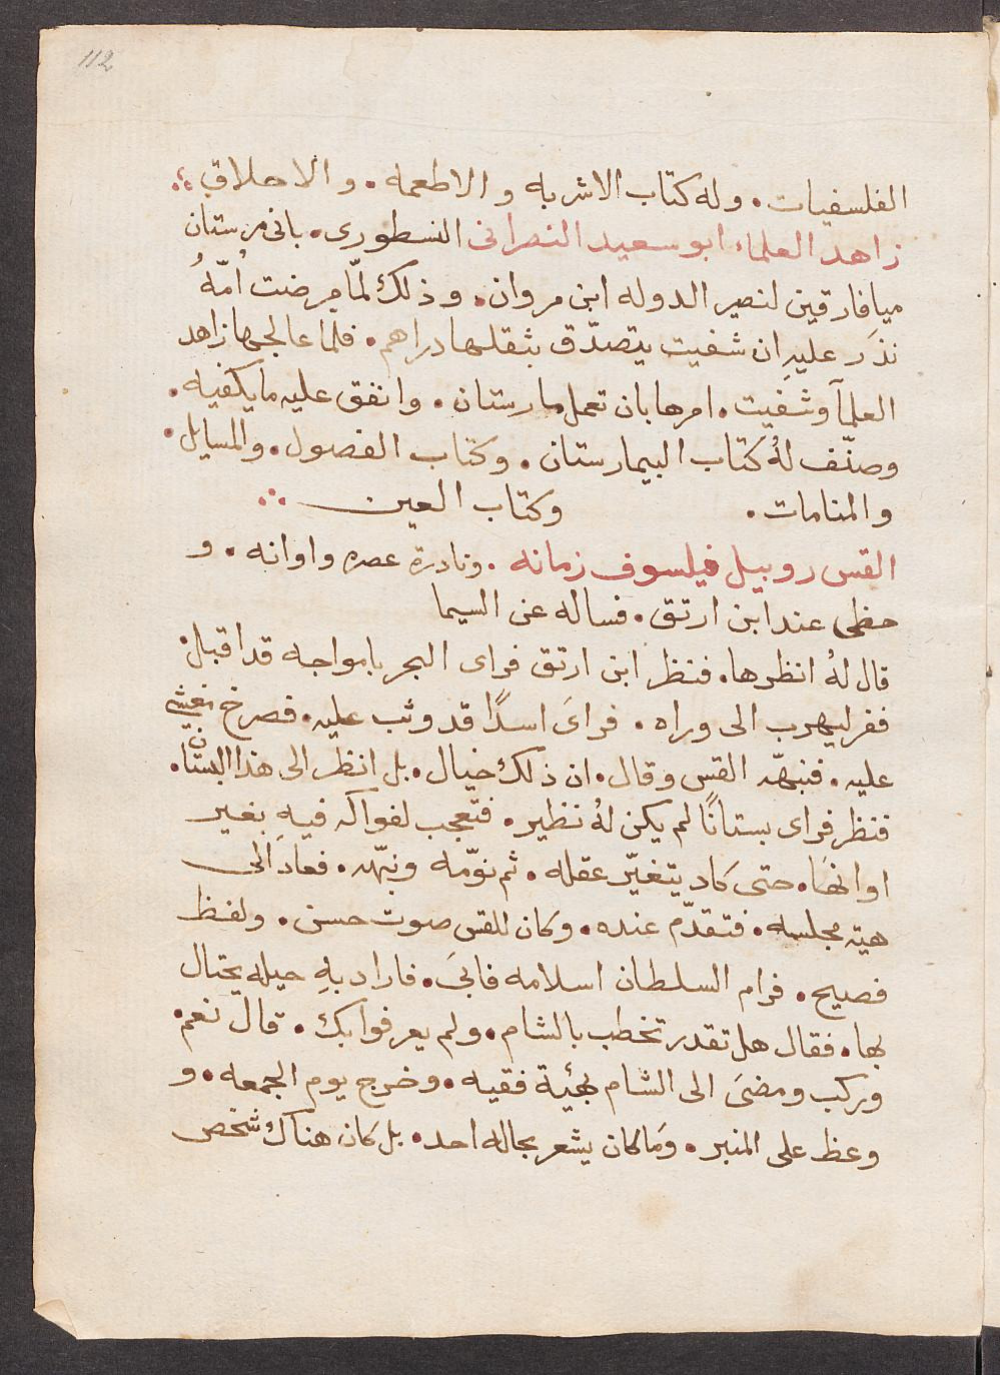 112
الفلسفيات. وله كتاب الاشربه و الاطعمه. و الاخلاق
زاهد العلماء ابو سعيد النصرانى النسطورى. بانى مرستان
ميافارقين لنصير الدوله ابن مروان. وذلك لمّا مرضت اُمّهُ
نذَر عليهِ ان شفيت يتصدّق بثقلها دراهم. فلما عالجها زاهد
العلمآ وشفيت. امرها بان تعمل مارستان. وانفق عليه مايكفيه.
وصنّف لهُ كتاب البيمارستان. وكتاب الفصول. والمسايل.
والمنامات. وكتاب العين
القس روبيل فيلسوف زمانه. ونادرة عصره واوانه. و
حظى عند ابن ارتق. فساله عن السيما
قال لهُ انظرها. فنظر ابن ارتق فراى البحر بامواجه قد اقبل.
ففر ليهرب الى وراه. فراىَ اسدًا قد وثب عليه. فصرخ فغشى
عليه. فنبهّه القس وقال. ان ذلك خيال. بل انظر الى هذا البستان.
فنظر فراى بستانًا لم يكن لهُ نظير. فتعجب لفواكه فيهِ بغير
اوانهَا. حتى كَاد يتغيّر عقله. ثم نوّمه ونبّهه. فعادَ الى
هيته مجلسه. فتقدّم عنده. وكان للقس صوت حسن. ولفظ
فصيح. فرام السلطان اسلامه فابىَ. فاراد بهِ حيله يحتال
بها. فقال هل تقدر تخطب بالشام. ولم يعرفوا بك. قال نعم.
وركب ومضىَ الى الشام بهئية فقيه. وخرج يوم الجمعه. و
وعظ على المنبر. ومَا كان يشعر بحاله احد. بل كَان هناك شخص